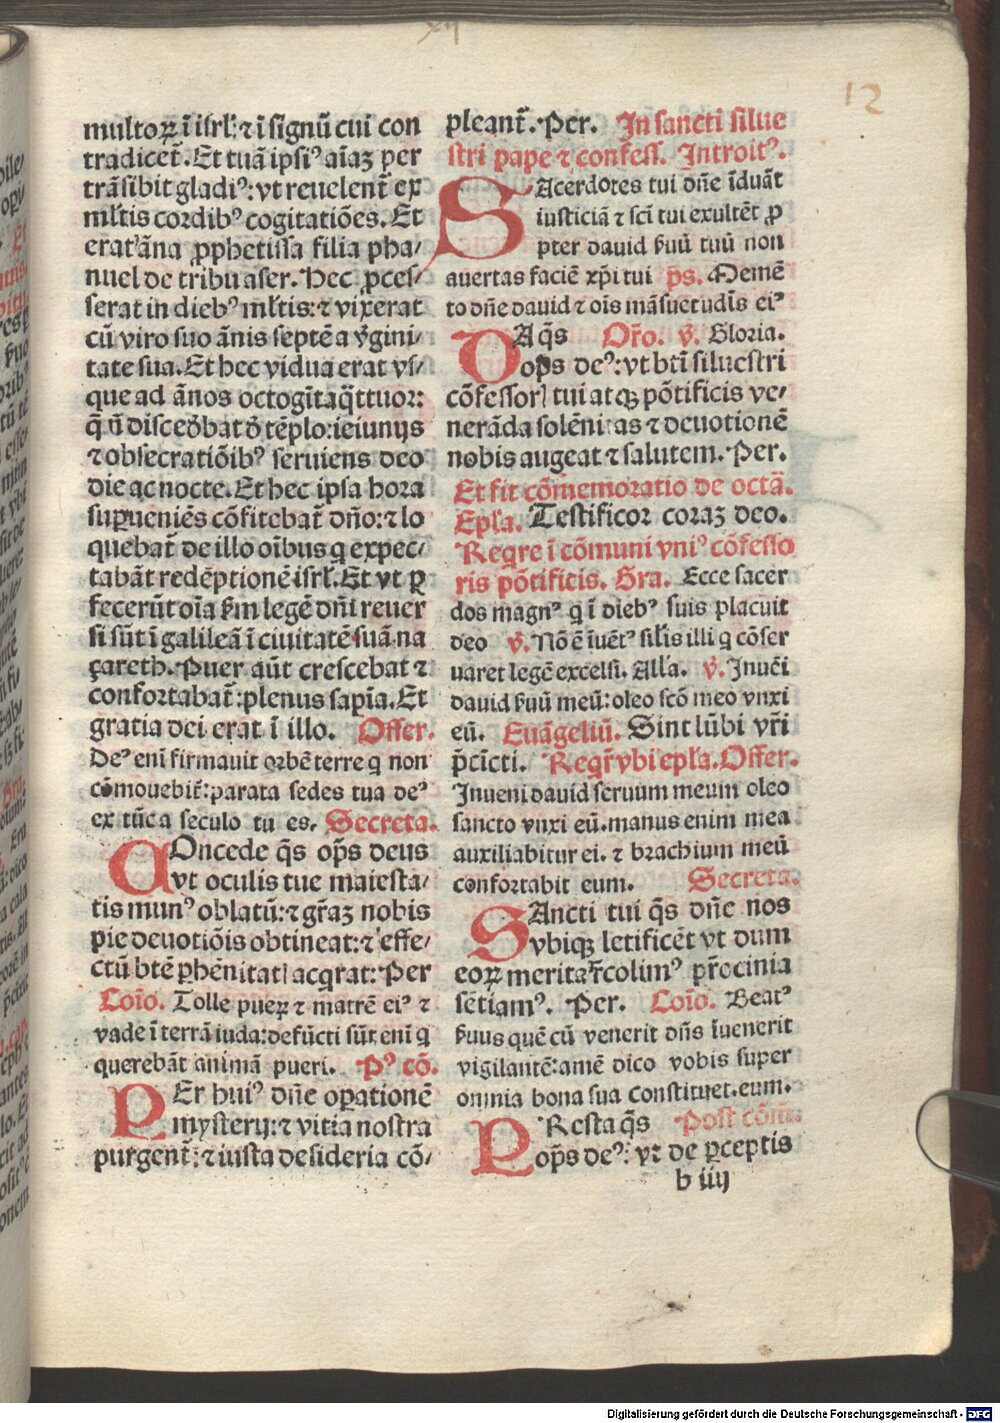 xij
12
multoꝝ ī iſrl': ⁊ ī ſignū cui con
tradicet̄. Et tuā ipſiꝰ aīaꝫ per
trāſibit gladiꝰ: vt reuelent̄ ex
ml̄tis cordibꝰ cogitatiōes. Et
erat āna ꝓphetiſſa filia pha⸗
nuel de tribu aſer. Hec ꝓceſ⸗
ſerat in diebꝰ ml̄tis: ⁊ vixerat
cū viro ſuo ānis ſeptē a v̓gini⸗
tate ſua. Et hec vidua erat vſ⸗
que ad ānos octogīta q̄ttuor:
q̄ ū diſcedebat d̓ tēplo: ieiunijs
⁊ obſecratiōibꝰ ſeruiens deo
die ac nocte. Et hec ipſa hora
ſuꝑueniēs cōfitebat̄ dn̄o: ⁊ lo
quebat̄ de illo oībus q expec⸗
tabāt redēptionē iſrl'. Et vt ꝑ
fecerūt oīa ẜm legē dn̄i reuer
ſi ſūt ī galileā ī ciuitatē ſuā na
çareth. Puer aūt creſcebat ⁊
confortabat̄: plenus ſapīa. Et
gratia dei erat ī illo. Offer.
Deꝰ enī firmauit orbē terre q non
cōmouebit̄: parata ſedes tua deꝰ
ex tūc a ſeculo tu es. Secreta.
COncede q̄s op̄s deus
vt oculis tue maieſta⸗
tis munꝰ oblatū: ⁊ gr̄aꝫ nobis
pie deuotiōis obtineat: ⁊ effe⸗
ctū btē ꝑhēnitatꝭ acqrat: Per
Coīo. Tolle pueꝝ ⁊ matrē eiꝰ ⁊
vade ī terrā iuda: defūcti ſūt enī q
querebāt animā pueri. Pꝰ cō.
PEr huiꝰ dn̄e oꝑationē
myſterij: ⁊ vitia noſtra
purgent̄: ⁊ iuſta deſideria cō⸗
pleant̄. Per. In ſancti ſilue
ſtri pape ⁊ confeſſ. Introitꝰ.
SAcerdotes tui dn̄e īduāt
iuſticiā ⁊ ſc̄i tui exultēt ꝓ
pter dauid ẜuū tuū non
auertas faciē xp̄i tui ps. Memē
to dn̄e dauid ⁊ oīs māſuetudīs eiꝰ
DA q̄s Or̄o. v̓. Gloria.
op̄s deꝰ: vt btī ſilueſtri
cōfeſſorꝭ tui atqꝫ pōtificis ve⸗
nerāda ſolēnitas ⁊ deuotionē
nobis augeat ⁊ ſalutem. Per.
Et fit cōmemoratio de octā.
Epl'a. Teſtificor coraꝫ deo.
Reqre ī cōmuni vniꝰ cōfeſſo
ris pōtificis. Gra. Ecce ſacer
dos magnꝰ q ī diebꝰ ſuis placuit
deo v̓. Nō ē īuētꝰ ſil'is illi q cōſer
uaret legē excelſi. All'a. v̓. Inuēi
dauid ẜuū meū: oleo ſcō meo vnxi
eū. Euāgeliū. Sint lūbi vr̄i
p̄cīcti. Reqr̄ vbi epl'a. Offer.
Inueni dauid ſeruum meum oleo
ſancto vnxi eū. manus enim mea
auxiliabitur ei. ⁊ brachium meū
confortabit eum. Secreta.
SAncti tui q̄s dn̄e nos
vbiqꝫ letificēt vt dum
eoꝝ merita r̄colimꝰ pr̄ocinia
ſētiamꝰ. Per. Coīo. Beatꝰ
ẜuus quē cū venerit dn̄s īuenerit
vigilantē: amē dico vobis ſuper
omnia bona ſua conſtituet. eum.
PReſta q̄s Poſt cōm:
op̄s deꝰ: vt de ꝑceptis
b iiij
Digitalisierung gefördert durch die Deutsche Forschungsgemeinschaft - DFG